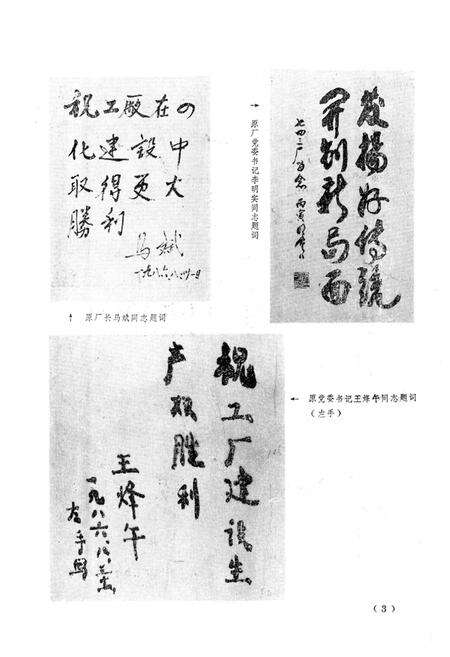 祝工厰在四
化建設中
取得更大
勝利
马斌
一九八六、八、
↑ 原厂长马斌同志题词
→ 原厂党委书记李明实同志题词
發揚好傳統
開創新局面
七四二厂为念 丙寅
← 原党委书记王烽午同志题词
(左手)
祝工厂建设生
产极胜利
王烽午
一九八六、八、
左手写
(3)